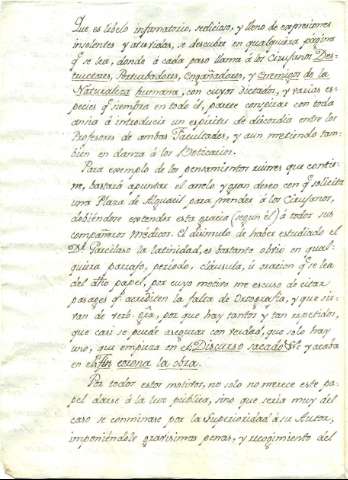 Que es libelo infamatorio, sedicioso, y lleno de expresiones
insolentes y atrevidas, se descubre en qualquiera pagina
q se lea, donde à cada paso llama à los Cirujanos Des-
tructores, Perturbadores, Engañadores, y Enemigos de la
Naturaleza humana, con cuyos dictados, y varias es-
pecies q siembra en todo èl, parece conspirar con toda
ansia à introducir un espiritu de discordia entre los
Profesores de ambas Facultades, y aun metiendo tam-
bien en danza à los Boticarios.
Para exemplo de los pensamientos ruines que contie-
ne, bastarà apuntar el anelo y gran deseo con q solicita
una Plaza de Alguacil para prender à los Cirujanos,
debiendose extender esta gracia (segun èl) à todos sus
compañeros Medicos. El disimulo de haber estudiado el
Dr. Parcilaso la latinidad, es bastante obvio en qual-
quiera parrafo, periodo, clausula, ù oracion q se lea
del dho papel, por cuyo motivo me escuso de citar
pasages q acrediten la falta de Ortografia, y que sir-
van de por que hay tantos y tan repetidos,
que casi se puede asegurar con verdad, que solo hay
uno, que empieza en el Discurso sacado &c y acaba
en el fin corona la obra.
Por todos estos motivos, no solo no merece este pa-
pel darse à la luz publica, sino que seria muy del
caso se conminase por la Superioridad à su Autor,
imponiendole gravisimas penas, y recogimiento del